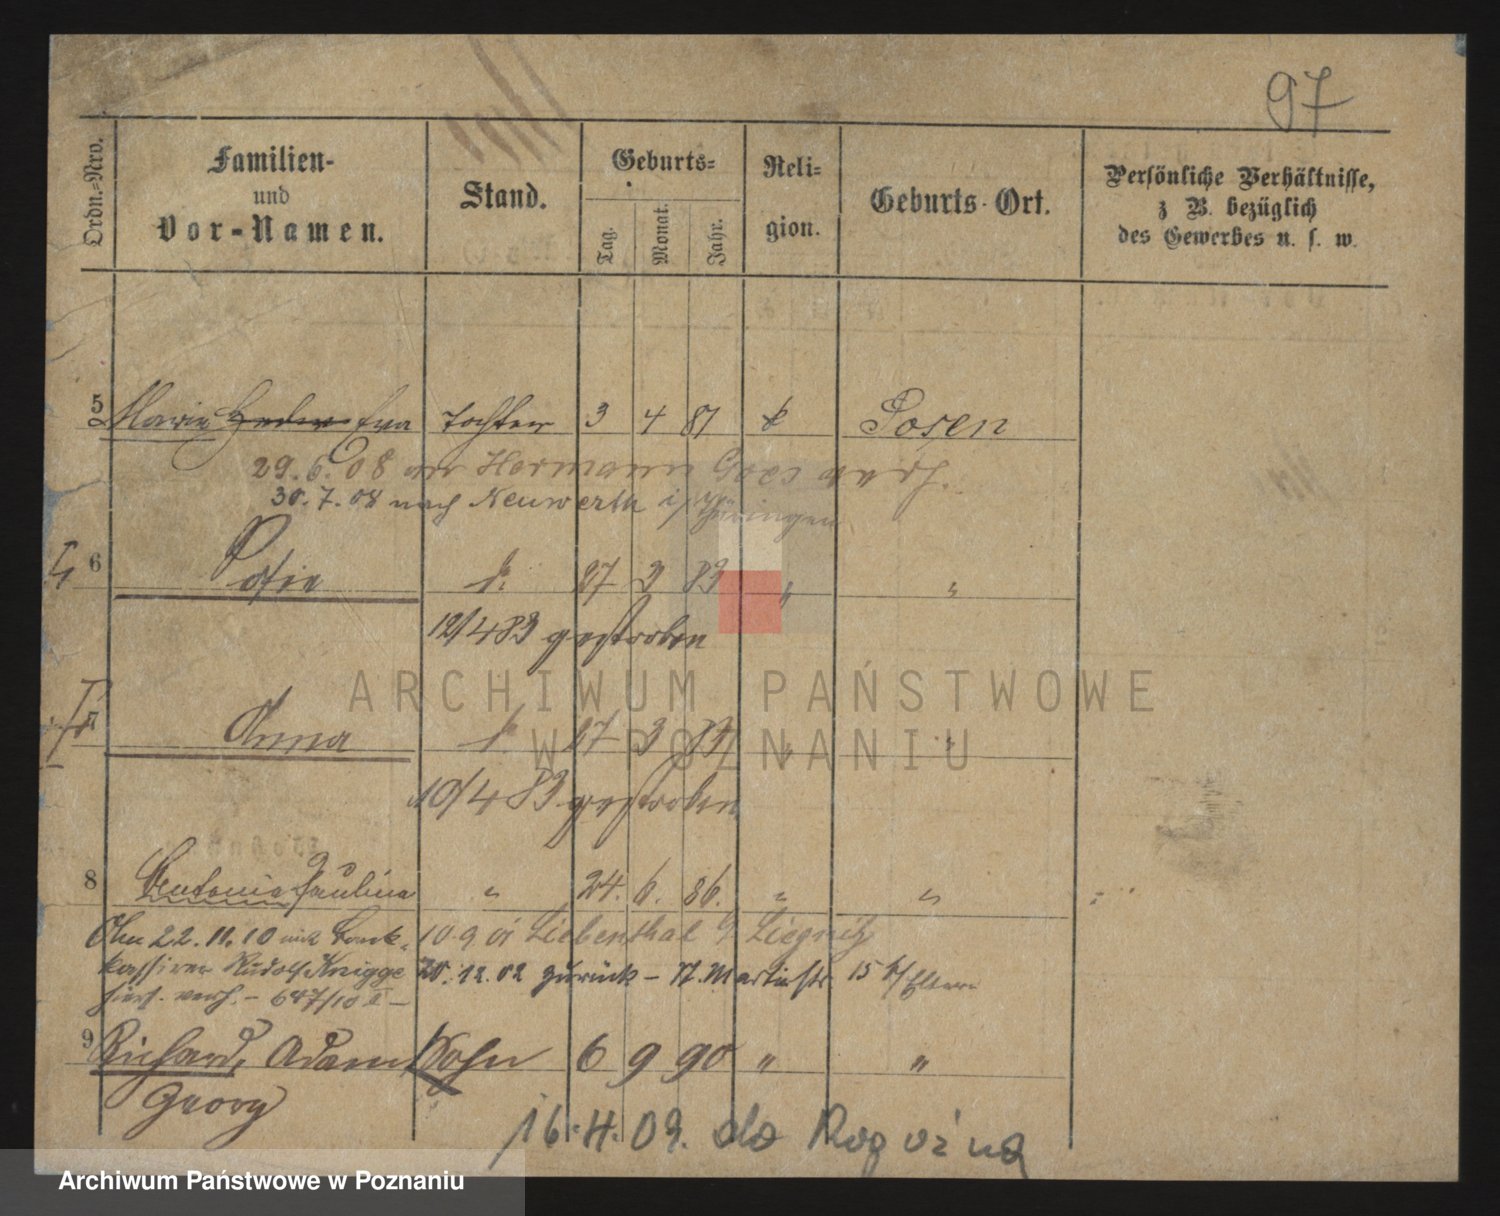 97
Ordn.-Nro.
Familien-
und
Vor-Namen.
Stand.
Geburts-
Tag.
Monat.
Jahr.
Reli-
gion.
Geburts-Ort.
Persönliche Verhältnisse,
z. B. bezüglich
des Gewerbes u. s. w.
5 Marie Hedw Eva Tochter 3 4 87 k Posen
29. 6. 08 an Hermann Goes verh.
30. 7. 08 nach Neuwerth i/ Thüringen
6 Sofie t. 27 3 83 " "
12/4 83 gestorben
7 Anna t. 27 3 83 " "
10/4 83 gestorben
8 Antonie Paulina " 24. 6. 86. " "
Ehe 22. 11. 10 mit Bank- 10. 9 01 Liebenthal b Liegnitz
kassirer Rudolf Knigge 20. 12. 02 zurück - St. Martinstr 15 b/ Eltern
hiers. verh. - 647/10 II -
9 Richard, Adam Sohn 6 9 90 " "
Georg
16. 4. 09. do Rogoźna
ARCHIWUM PAŃSTWOWE
W POZNANIU
Archiwum Państwowe w Poznaniu